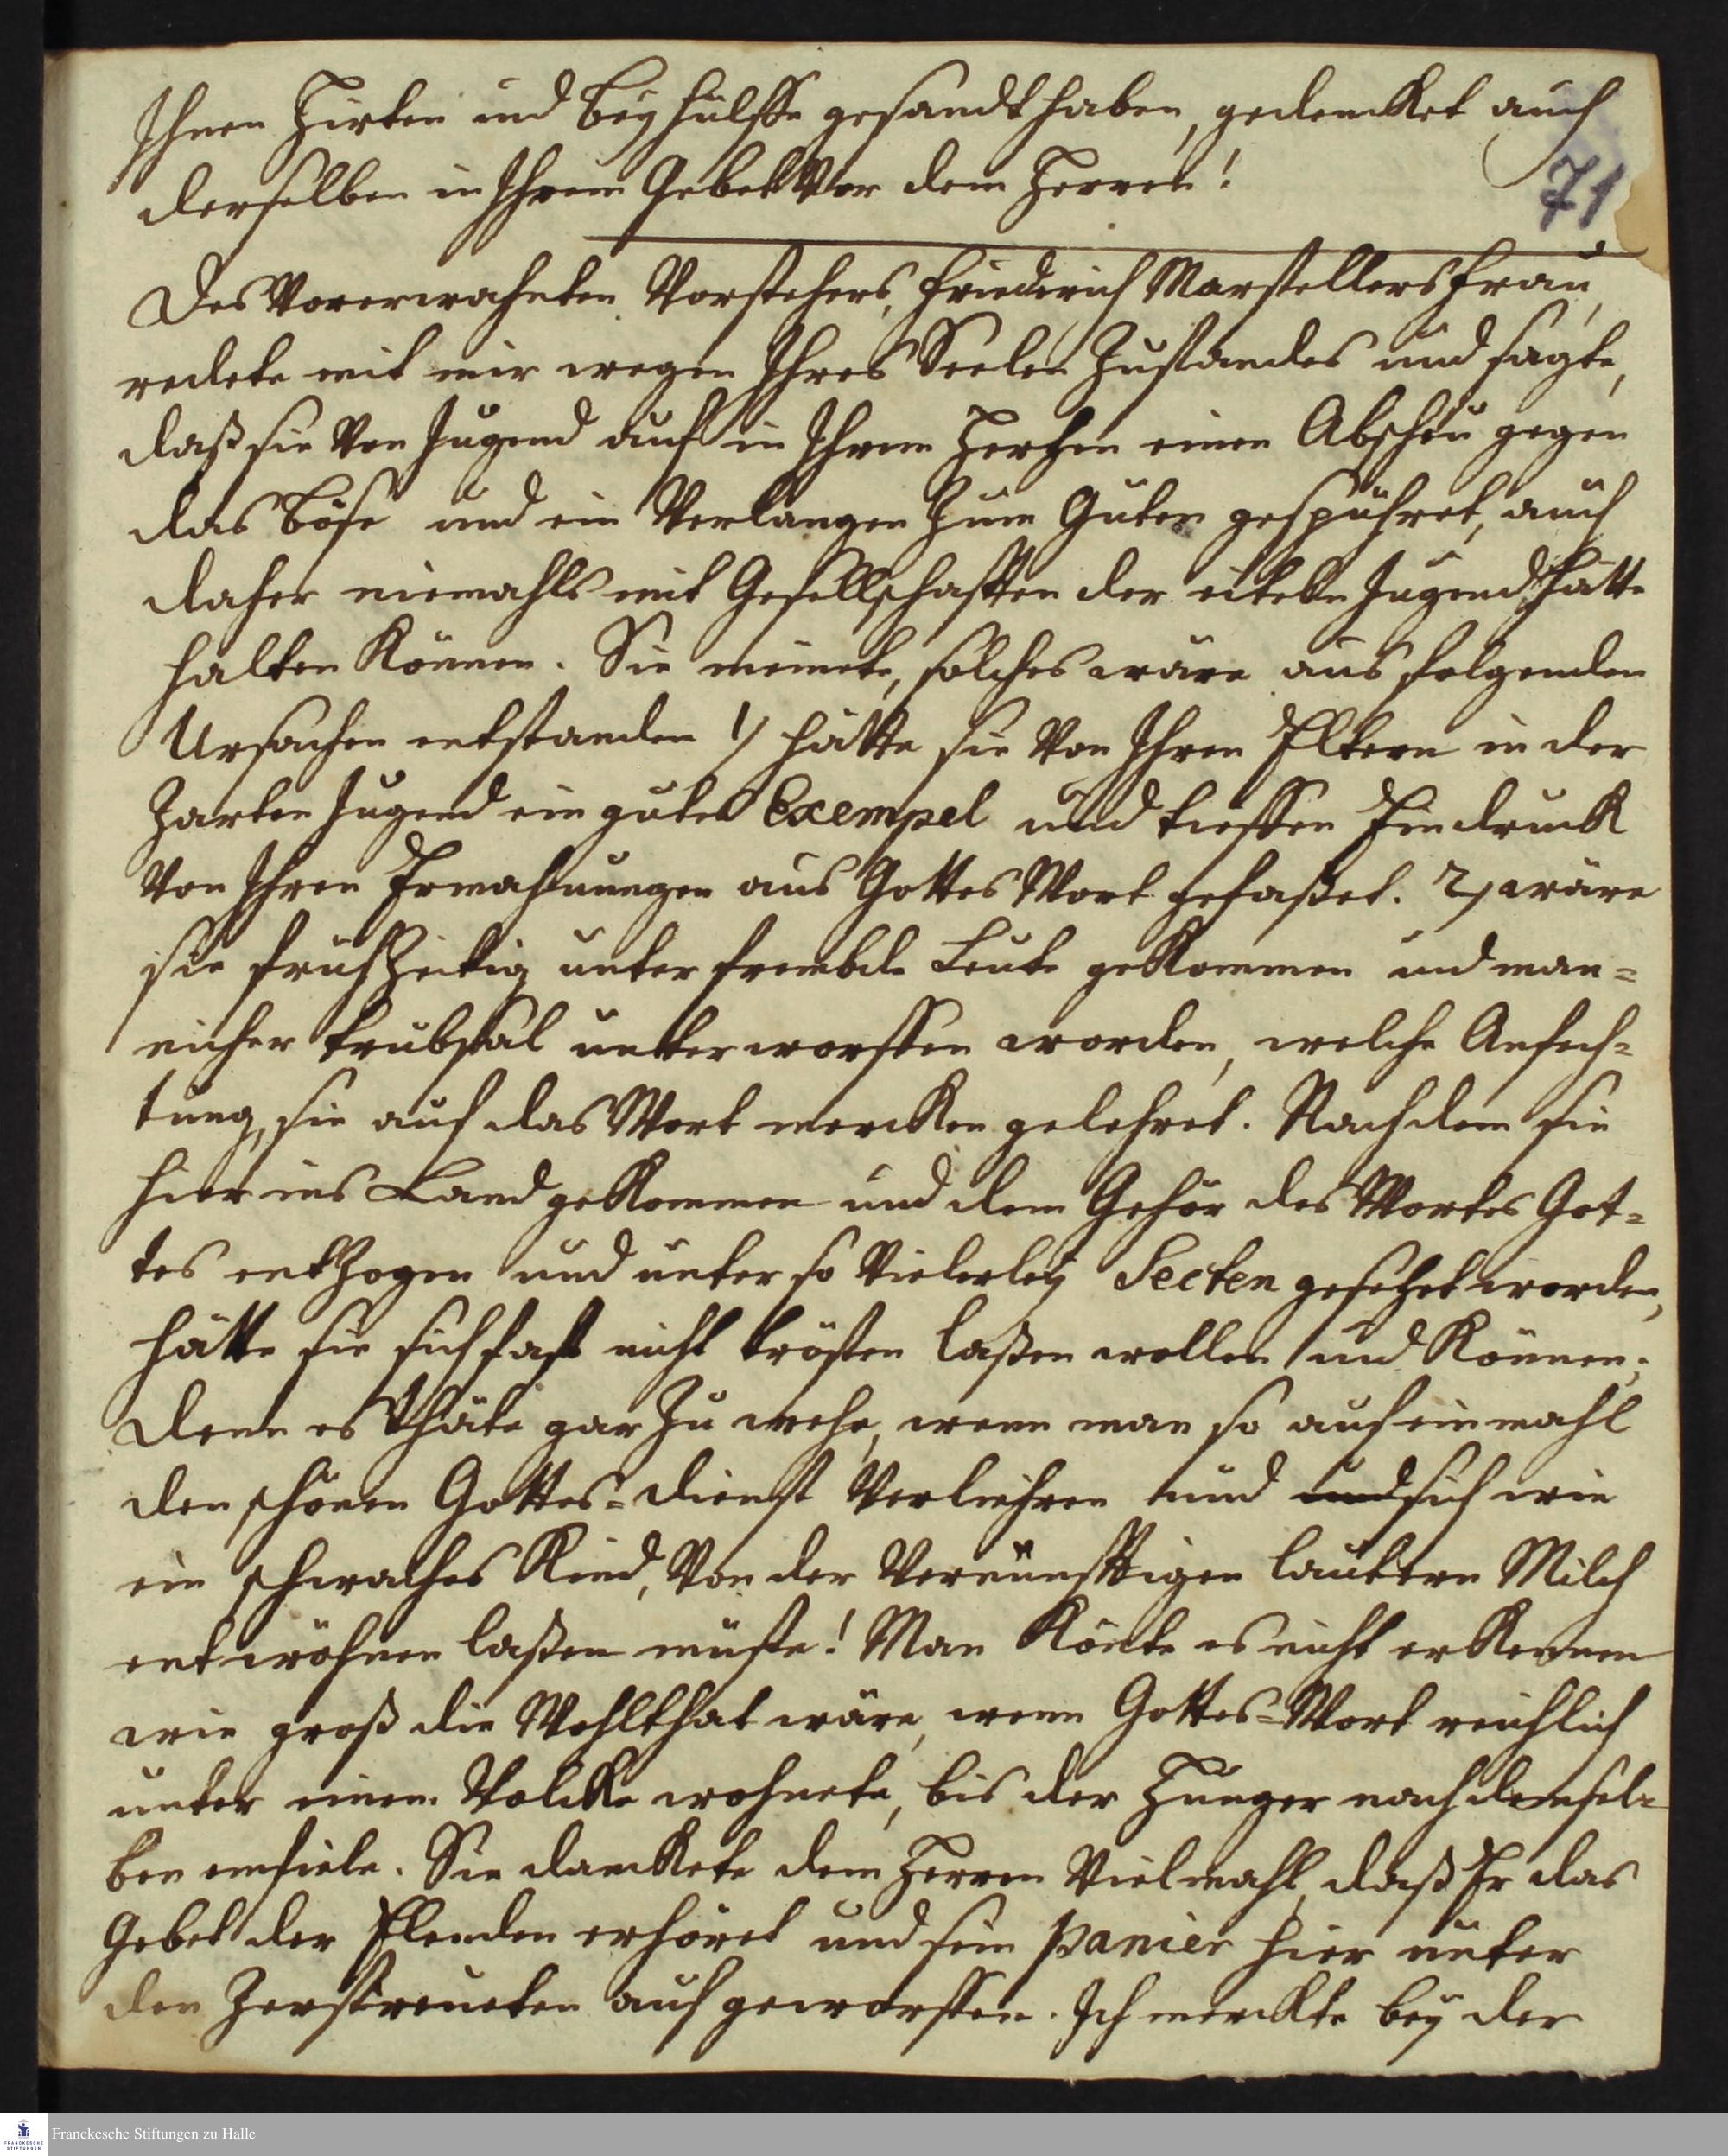 Ihnen Hirten und beyhülffe gesandt haben, gedencket auch
derselben in Ihrem Gebet vor dem Herren!
71
Des vorerwahnten Vorstehers, Friederich Marstellers Frau,
redete mit mir wegen Ihres Seelen Zustandes und sagte,
daß sie von Jugend auf in Ihrem Hertzen einen Abscheu gegen
das böse und ein Verlangen zum Guten gespühret, auch
daher niemahls mit Gesellschafften der eitelen Jugend hätte
halten können. Sie meinete, solches wäre aus folgenden
Ursachen entstanden 1) hätte sie von Ihren Eltern in der
zarten Jugend ein gutes Exempel und tieffen Eindruck
von Ihren Ermahnungen aus Gottes Wort gefaßet. 2) wäre
sie frühzeitig unter frembde Leute gekommen und man=
nicher trübsal unterworffen worden, welche Anfech=
tung, sie auf das Wort mercken gelehret. Nachdem sie
hier ins Land gekommen und dem Gehör des Wortes Got=
tes entzogen und unter so vielerley Secten gesetzet worden,
hätte sie sich fast nicht trösten laßen wollen und können;
denn es thäte gar zu wehe, wenn man so auf einmahl
den schönen Gottes=dienst verliehren und und sich wie
ein schwaches Kind, von der vernünfftigen lautern Milch
entwöhnen laßen müste! Man könte es nicht erkennen
wie groß die Wohlthat wäre, wenn Gottes=Wort reichlich
unter einem Volcke wohnete, bis der Hunger nach demsel=
ben einfiele. Sie danckete dem Herren vielmahl, daß Er das
Gebet der Elenden erhöret und sein panier hier unter
den Zerstreueten aufgeworffen. Ich merckte bey der
Franckesche Stiftungen zu Halle